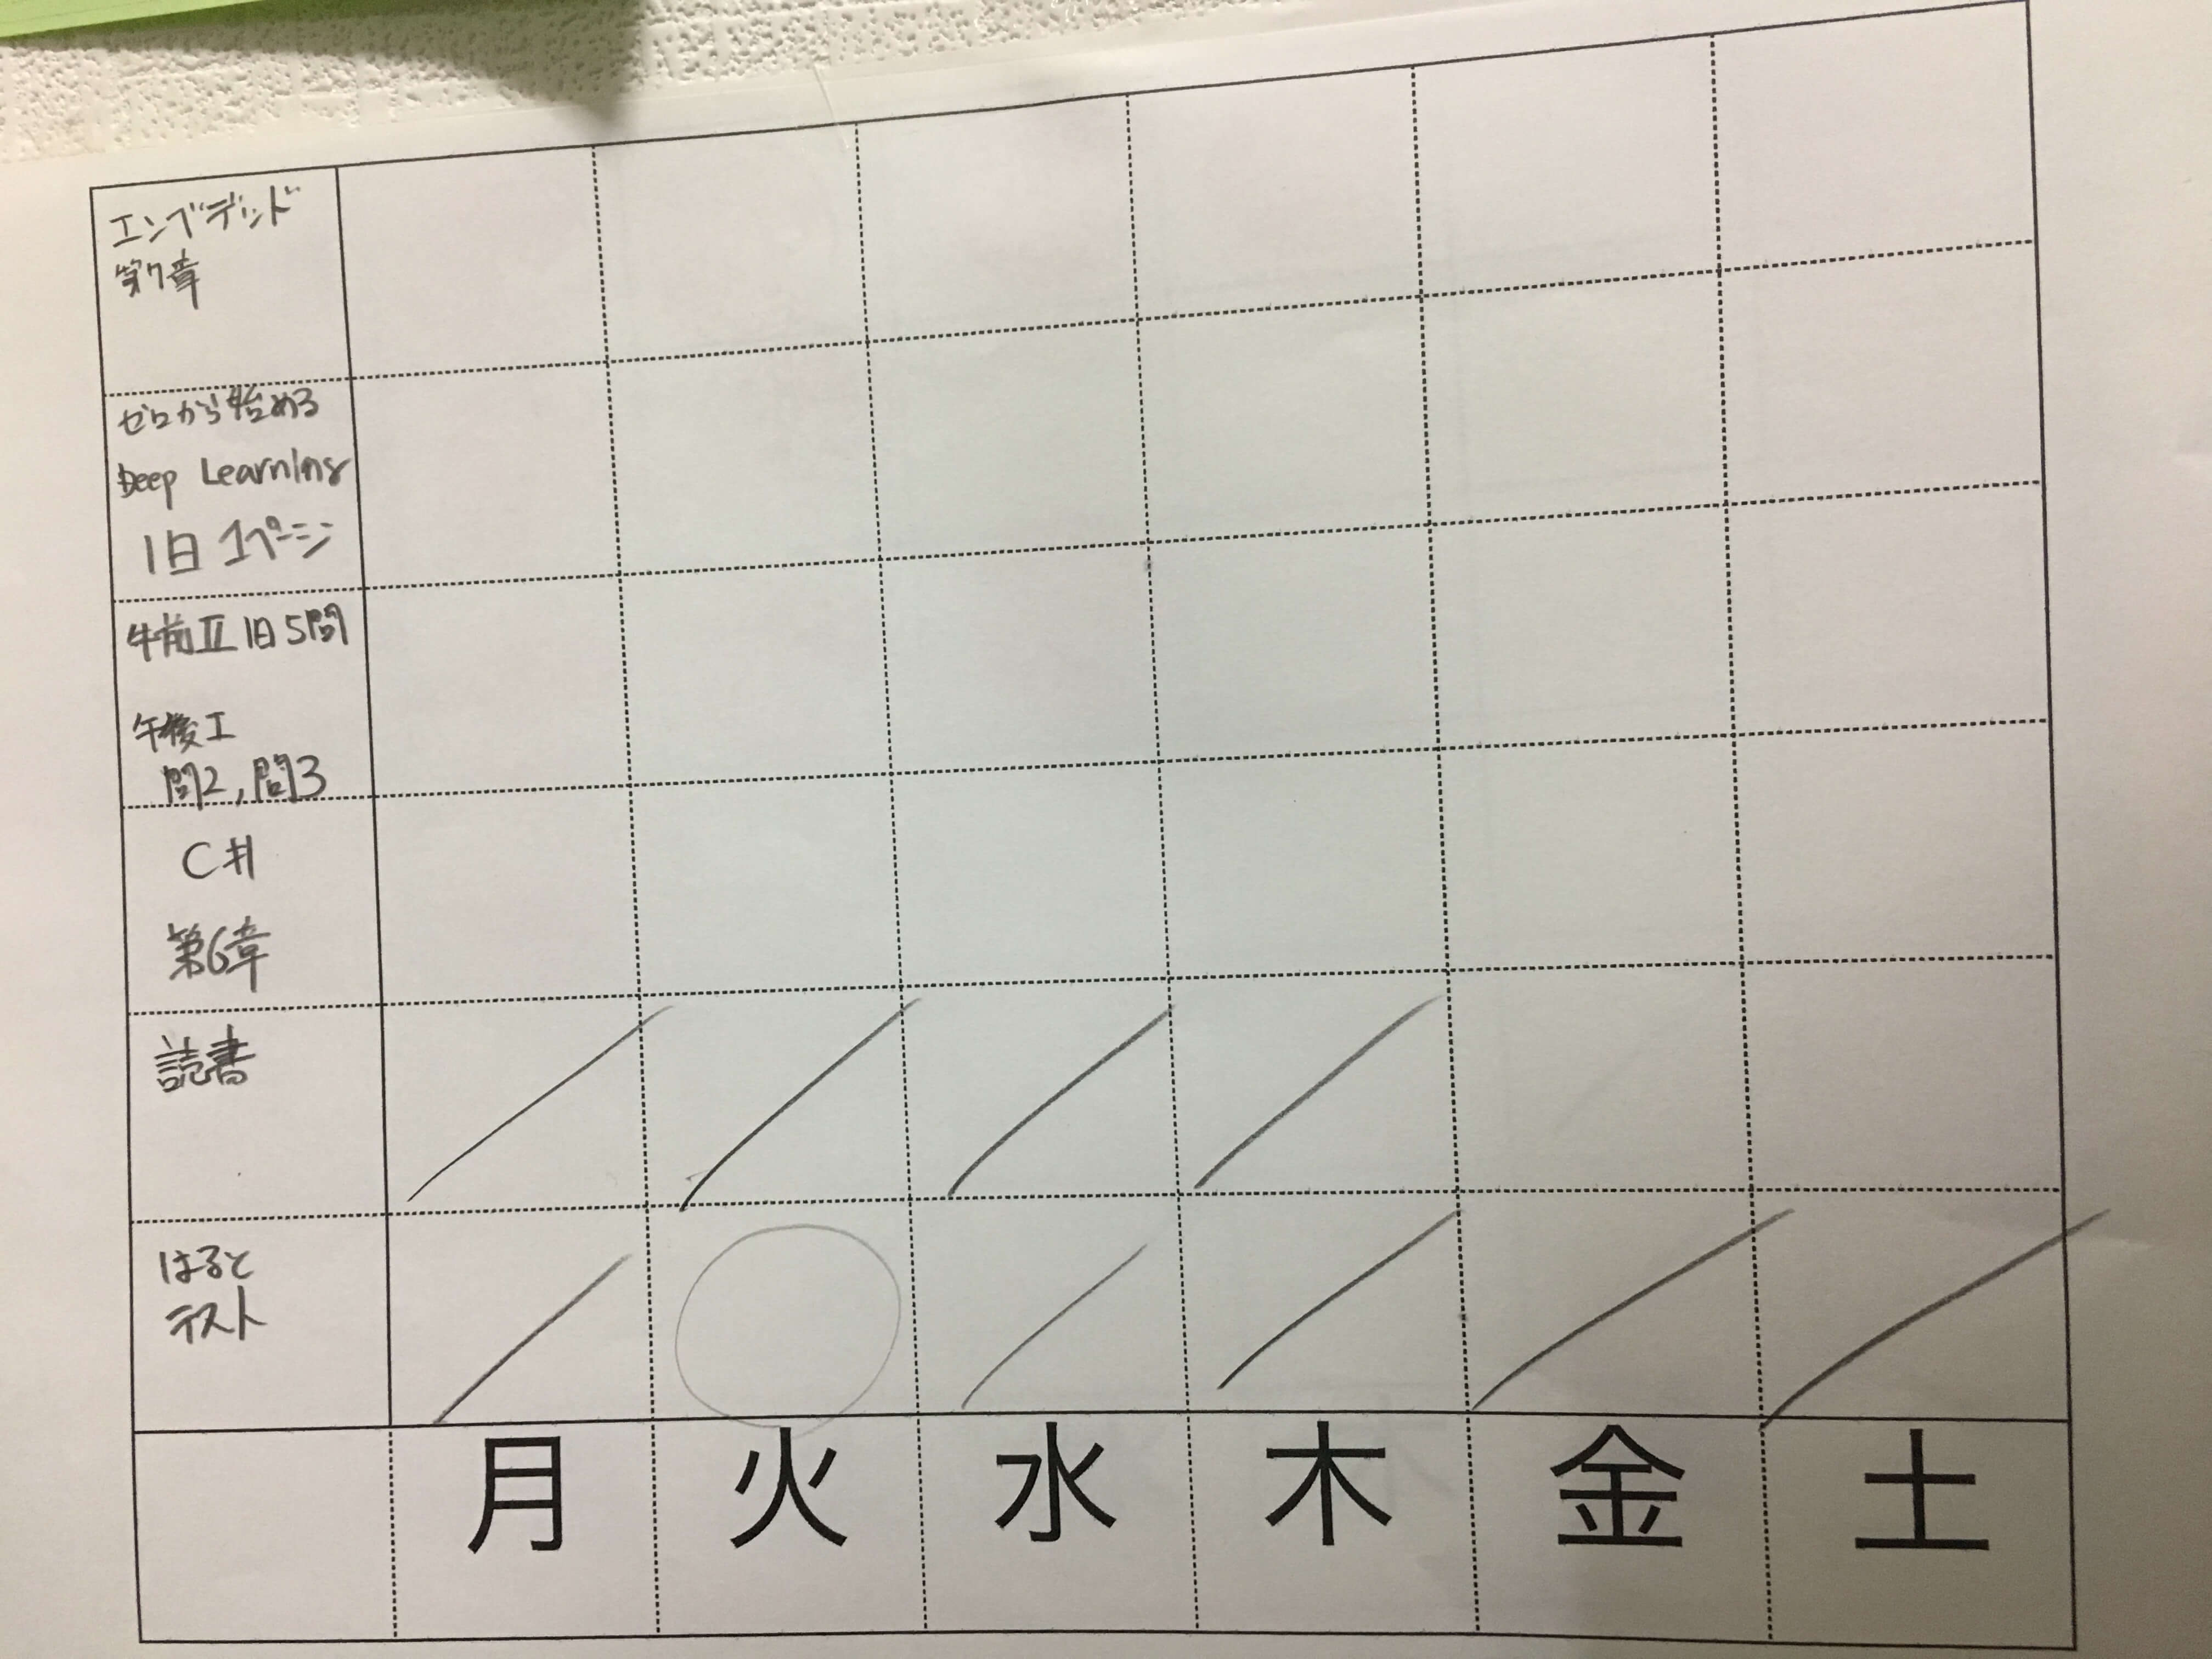 エンベデッド
第7章
ゼロから始める
Deep Learning
1日 1ページ
午前Ⅱ 1日5問
午後Ⅰ
問2, 問3
C#
第6章
読書
はると
テスト
月 火 水 木 金 土